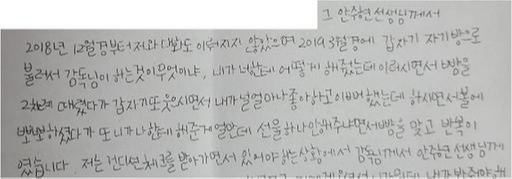 그 안주현 선생님께서
2018년 12월경부터 저와 대화도 이루어지지 않았으며 2019 3월경에 갑자기 자기방으로
불러서 감독님이 하는것이 무엇이냐, 내가 너한테 어떻게 해줬는데 이러시면서 뺨을
2차례 때렸다가 갑자기 또 웃으시면서 내가 널 얼마나 좋아하고 이뻐했는데 하시면서 볼에
뽀뽀하셨다가 또 니가 나한테 해준게 얼만데 선물하나 안해주냐면서 뺨을 맞고 반복이
였습니다. 저는 컨디션체크를 받아가면서 있어야 하는 상황에서 감독님께서 안주현 선생님께